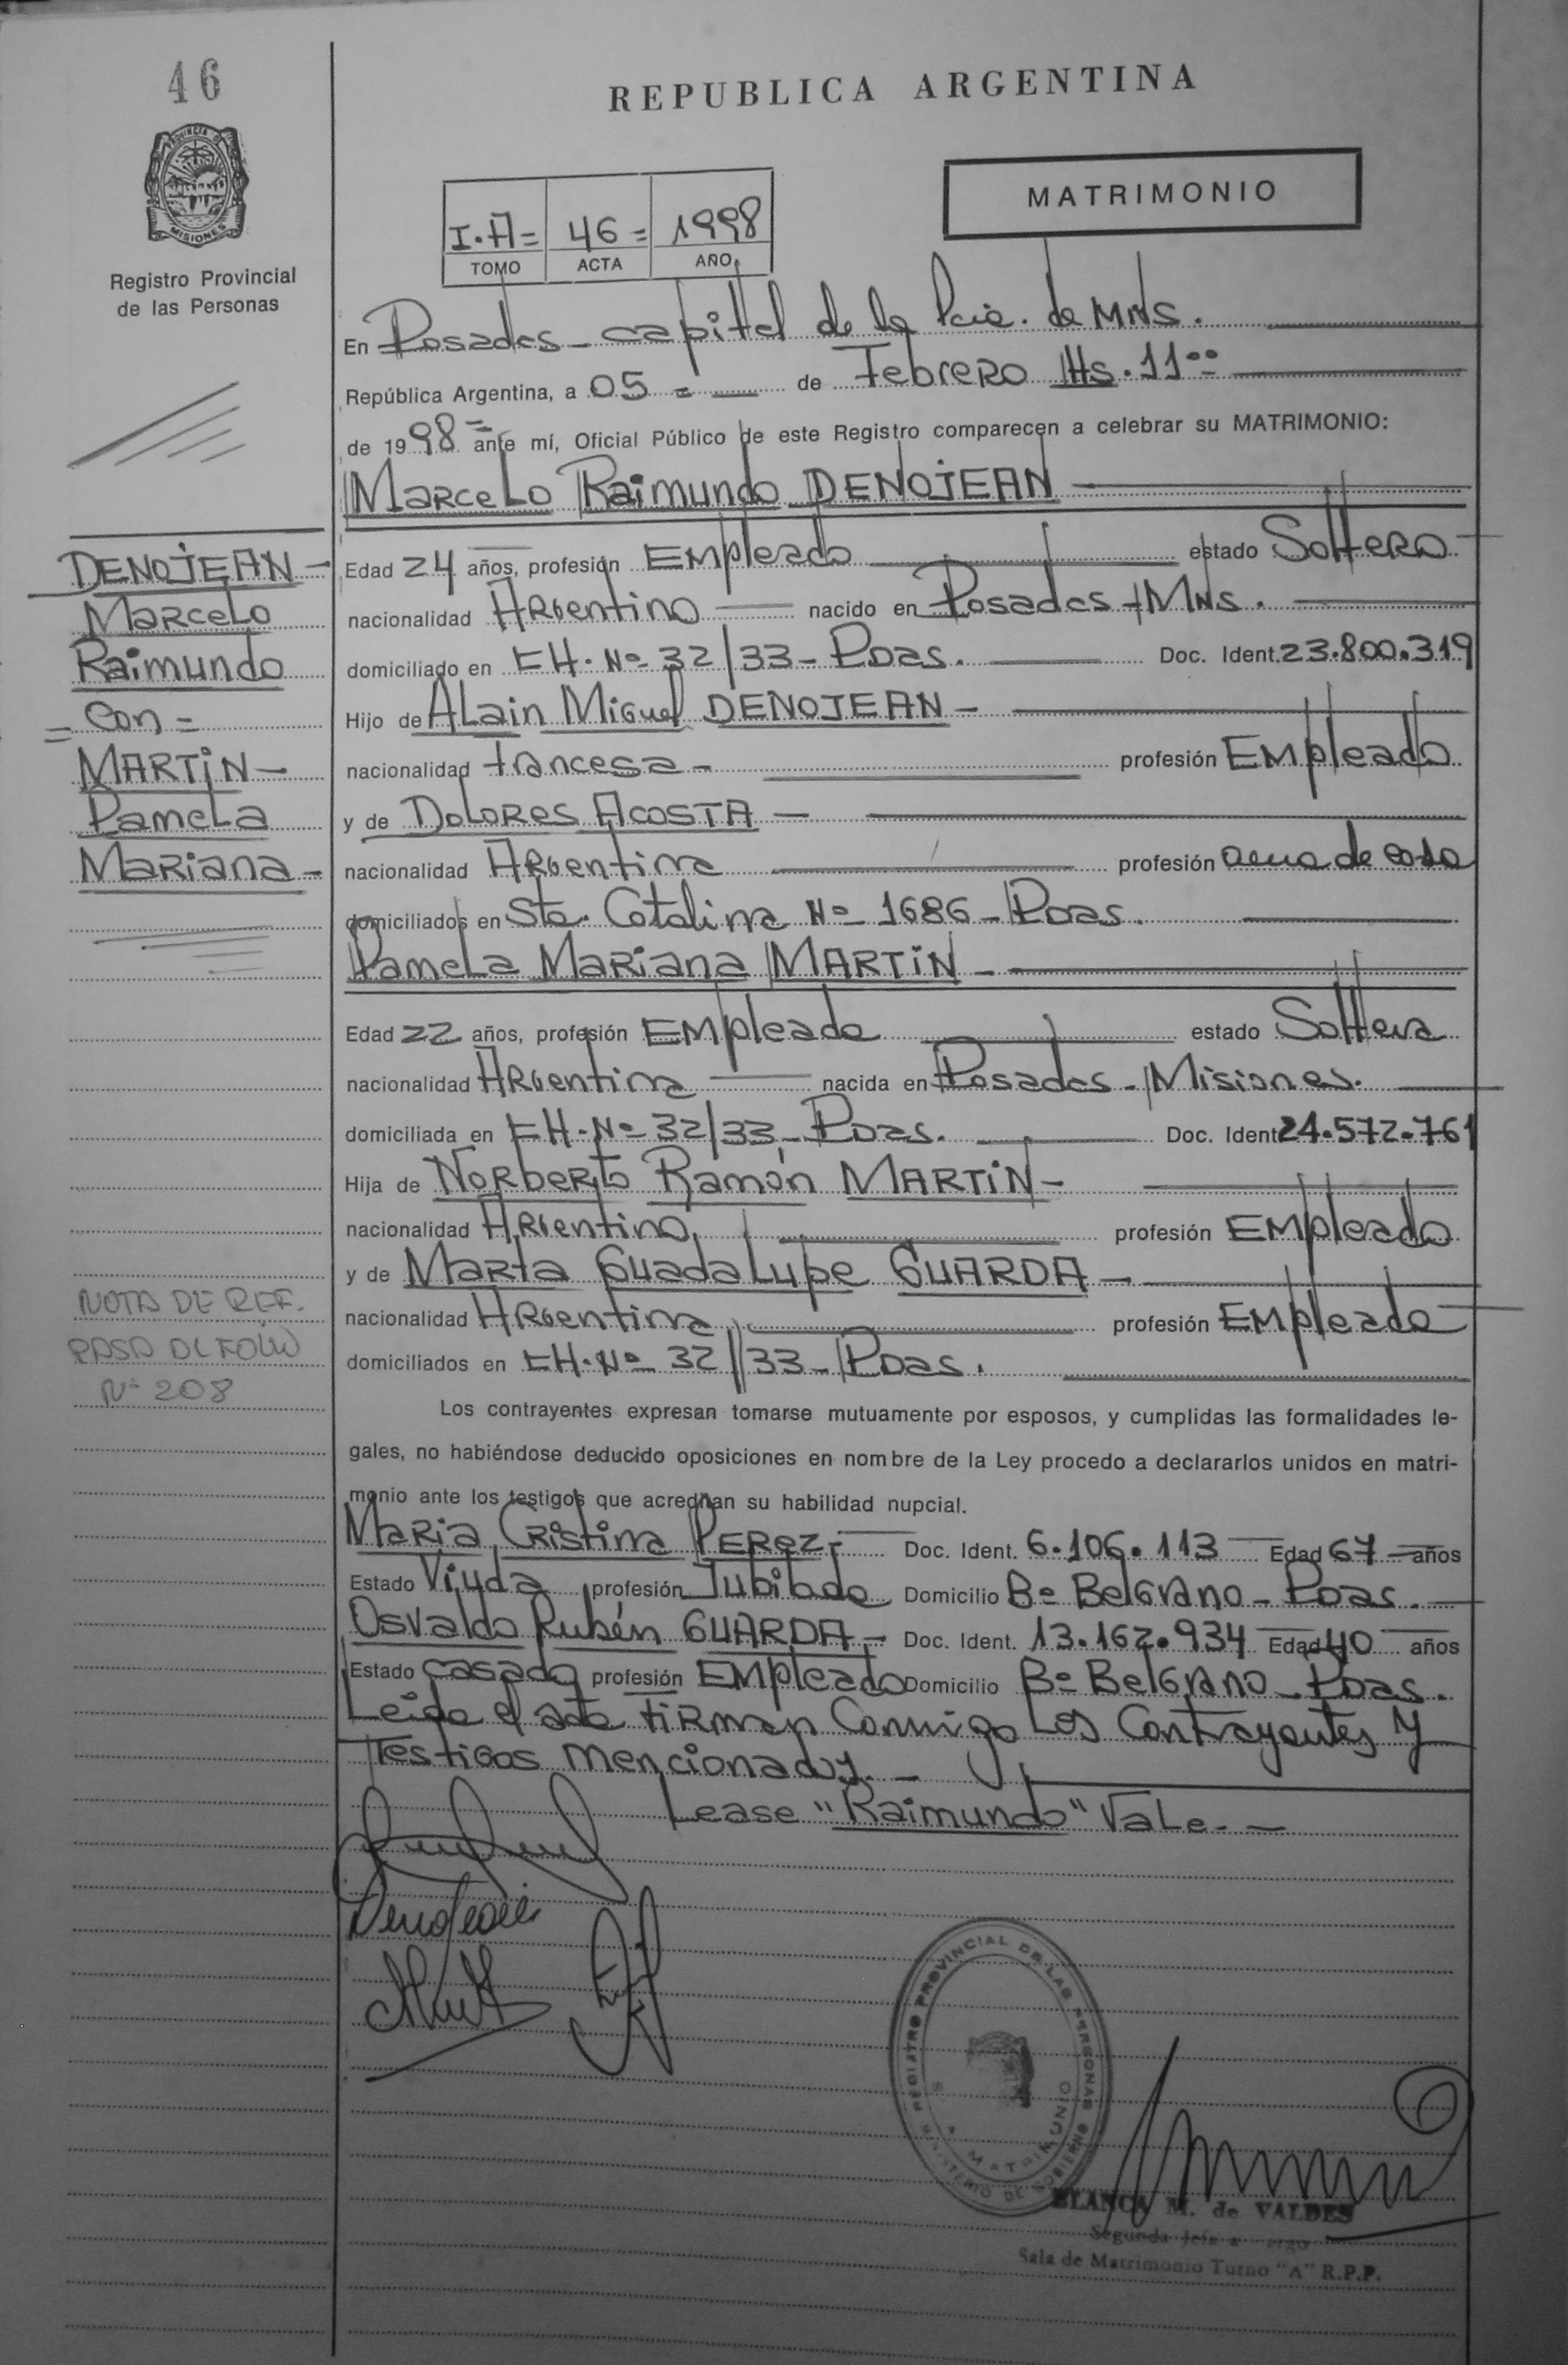 46
REPUBLICA ARGENTINA
PROVINCIA DE
MISIONES
Registro Provincial
de las Personas
I.A= 46= 1998
TOMO ACTA AÑO
MATRIMONIO
En Posadas - capital de la Pcia. de MNS.
República Argentina, a 05 = de Febrero Hs. 11°°
de 1998 = ante mí, Oficial Público de este Registro comparecen a celebrar su MATRIMONIO:
Marcelo Raimundo DENOJEAN
DENOJEAN -
Marcelo
Raimundo
= con =
MARTIN -
Pamela
Mariana -
Edad 24 años, profesión Empleado estado Soltero
nacionalidad Argentino nacido en Posadas - MNS.
domiciliado en CH. Nº 32/33 - Pdas. Doc. Ident. 23.800.319
Hijo de Alain Miguel DENOJEAN -
nacionalidad francesa - profesión Empleado
y de Dolores ACOSTA -
nacionalidad Argentina profesión ama de casa
domiciliados en Sta. Catalina Nº 1686 - Pdas.
Pamela Mariana MARTIN -
Edad 22 años, profesión Empleada estado Soltera
nacionalidad Argentina nacida en Posadas - Misiones.
domiciliada en CH. Nº 32/33 - Pdas. Doc. Ident 24.572.761
Hija de Norberto Ramón MARTIN -
nacionalidad Argentino profesión Empleado
y de Marta Guadalupe GUARDA -
nacionalidad Argentina profesión Empleada
domiciliados en CH. Nº 32/33 - Pdas.
NOTA DE REF.
PASA AL FOLIO
Nº 208
Los contrayentes expresan tomarse mutuamente por esposos, y cumplidas las formalidades le-
gales, no habiéndose deducido oposiciones en nombre de la Ley procedo a declararlos unidos en matri-
monio ante los testigos que acreditan su habilidad nupcial.
Maria Cristina PEREZ - Doc. Ident. 6.106.113 Edad 67 años
Estado Viuda profesión Jubilada Domicilio Bº Belgrano - Pdas.
Osvaldo Rubén GUARDA - Doc. Ident. 13.162.934 Edad 40 años
Estado casado profesión Empleado Domicilio Bº Belgrano - Pdas.
Leida el acta firman Conmigo Los Contrayentes y
Testigos mencionados. -
Lease "Raimundo" Vale. -
Denojean
REGISTRO PROVINCIAL DE LAS PERSONAS
MATRIMONIO
MINISTERIO DE GOBIERNO
BLANCA M. de VALDES
Segunda Jefe a
Sala de Matrimonio Turno "A" R.P.P.